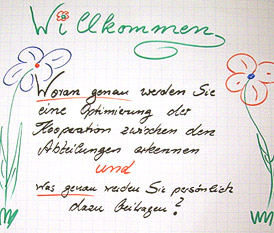 Willkommen
Woran genau werden Sie
eine Optimierung der
Kooperation zwischen den
Abteilungen erkennen
und
Was genau werden Sie persönlich
dazu beitragen?